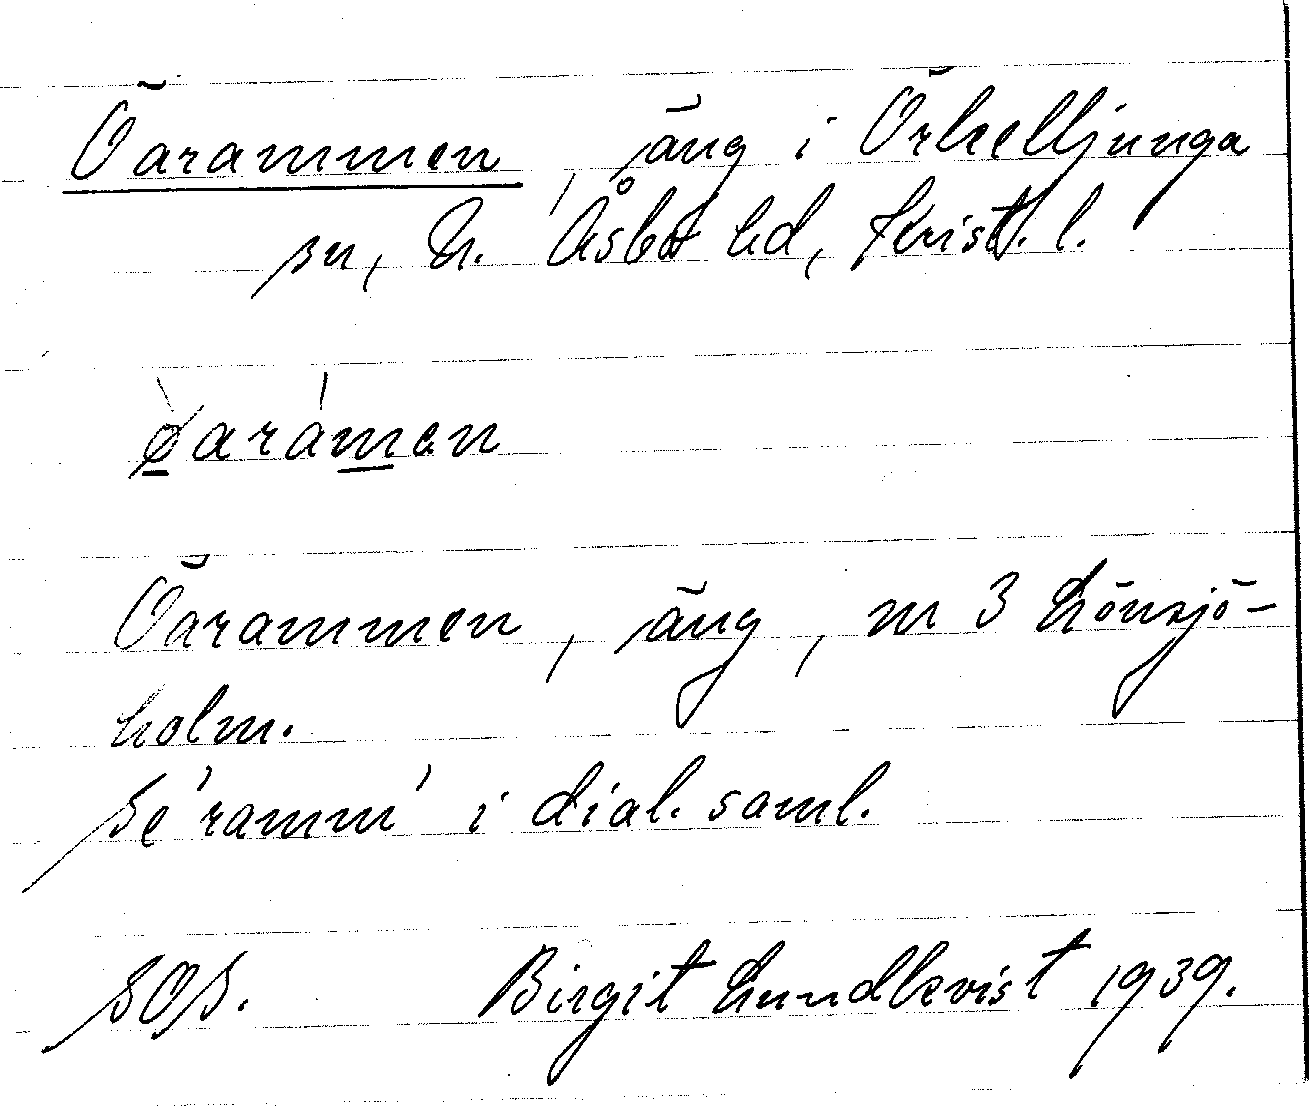 Öarammen, äng i Örkelljunga
sn, N. Åsbo hd, Krist. l.
ø̀arámen
Öarammen, äng, m 3 Lönsjö-
holm.
Se 'ramm' i dial. saml.
SOS. Birgit Lundkvist 1939.